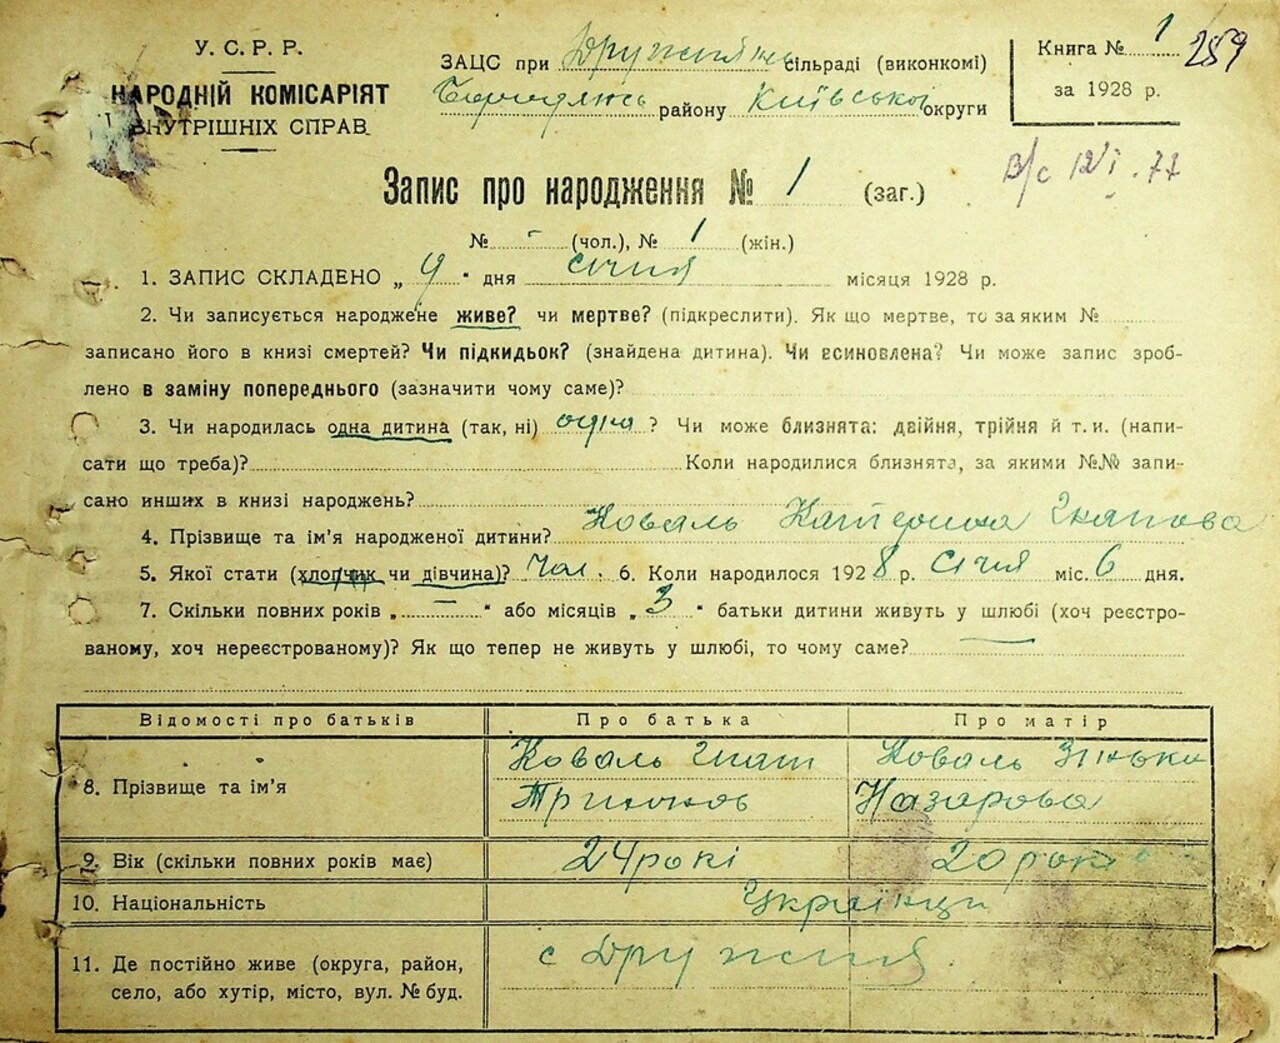 У. С. Р. Р.
НАРОДНІЙ КОМІСАРІЯТ
ВНУТРІШНІХ СПРАВ
ЗАЦС при сільраді (виконкомі)
району Київської округи
Книга № 1 259
за 1928 р.
12/I.77
Запис про народження № 1 (заг.)
№ - (чол.), № 1 (жін.)
1. ЗАПИС СКЛАДЕНО „ 9 “ дня січня місяця 1928 р.
2. Чи записується народжене живе? чи мертве? (підкреслити). Як що мертве, то за яким №
записано його в книзі смертей? Чи підкидьок? (знайдена дитина). Чи всиновлена? Чи може запис зроб-
лено в заміну попереднього (зазначити чому саме)?
3. Чи народилась одна дитина (так, ні) одна ? Чи може близнята: двійня, трійня й т. и. (напи-
сати що треба)? Коли народилися близнята, за якими №№ запи-
сано инших в книзі народжень?
4. Прізвище та ім’я народженої дитини? Коваль Катерина Гнатова
5. Якої стати (хлопчик чи дівчина)? Чол. 6. Коли народилося 1928 р. Січня міс. 6 дня.
7. Скільки повних років „ — “ або місяців „ 3 “ батьки дитини живуть у шлюбі (хоч реєстро-
ваному, хоч нереєстрованому)? Як що тепер не живуть у шлюбі, то чому саме? —
Відомості про батьків Про батька Про матір
8. Прізвище та ім’я Коваль Гнат Коваль Зінька
Назарова
9. Вік (скільки повних років має) 24 рокі 20 рокі
10. Національність Українци
11. Де постійно живе (округа, район, с Дружня
село, або хутір, місто, вул. № буд.